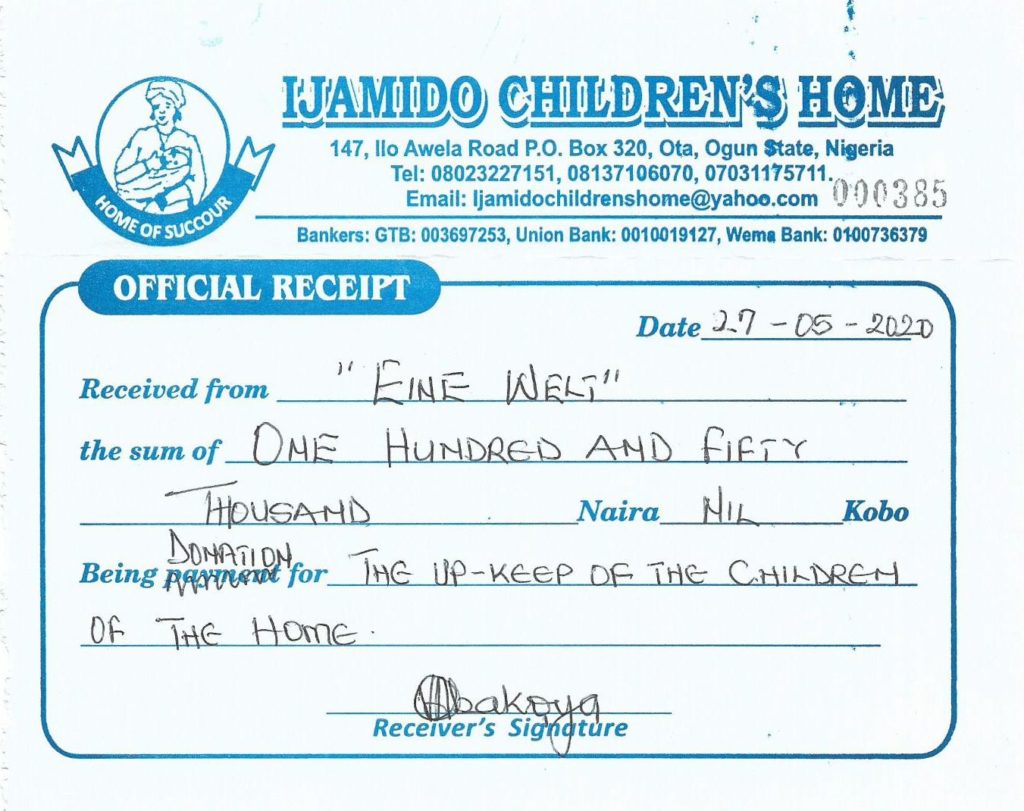 IJAMIDO CHILDREN'S HOME
147, Ilo Awela Road P.O. Box 320, Ota, Ogun State, Nigeria
Tel: 08023227151, 08137106070, 07031175711.
Email: Ijamidochildrenshome@yahoo.com 000385
HOME OF SUCCOUR
Bankers: GTB: 003697253, Union Bank: 0010019127, Wema Bank: 0100736379
OFFICIAL RECEIPT
Date 27-05-2020
Received from "EINE WELT"
the sum of ONE HUNDRED AND FIFTY
THOUSAND Naira NIL Kobo
DONATION
Being payment for THE UP-KEEP OF THE CHILDREN
OF THE HOME.
Receiver's Signature